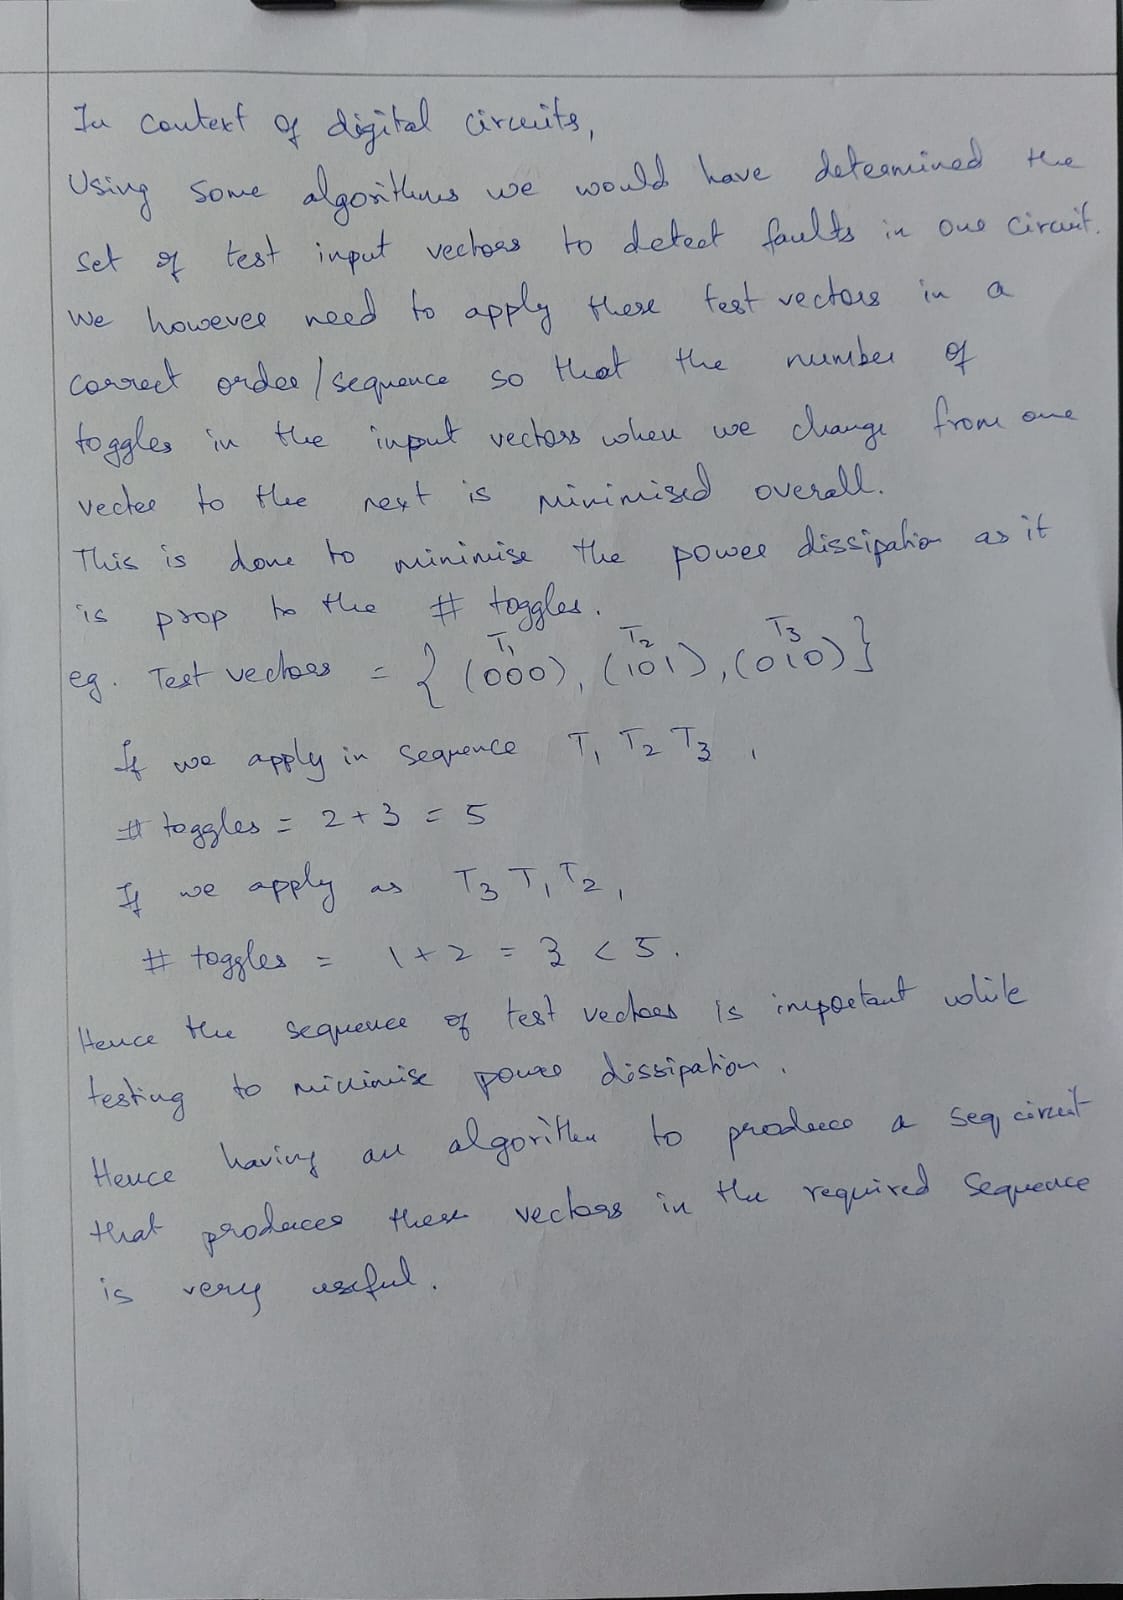 In context of digital circuits,
Using some algorithms we would have determined the
set of test input vectors to detect faults in our circuit.
We however need to apply these test vectors in a
correct order/sequence so that the number of
toggles in the input vectors when we change from one
vector to the next is minimised overall.
This is done to minimise the power dissipation as it
is prop to the # toggles.
T1 T2 T3
eg. Test vectors = { (000), (101), (010) }
If we apply in sequence T1 T2 T3,
# toggles = 2+3 = 5
If we apply as T3 T1 T2,
# toggles = 1+2 = 3 < 5.
Hence the sequence of test vectors is important while
testing to minimise power dissipation.
Hence having an algorithm to produce a seq circuit
that produces these vectors in the required sequence
is very useful.